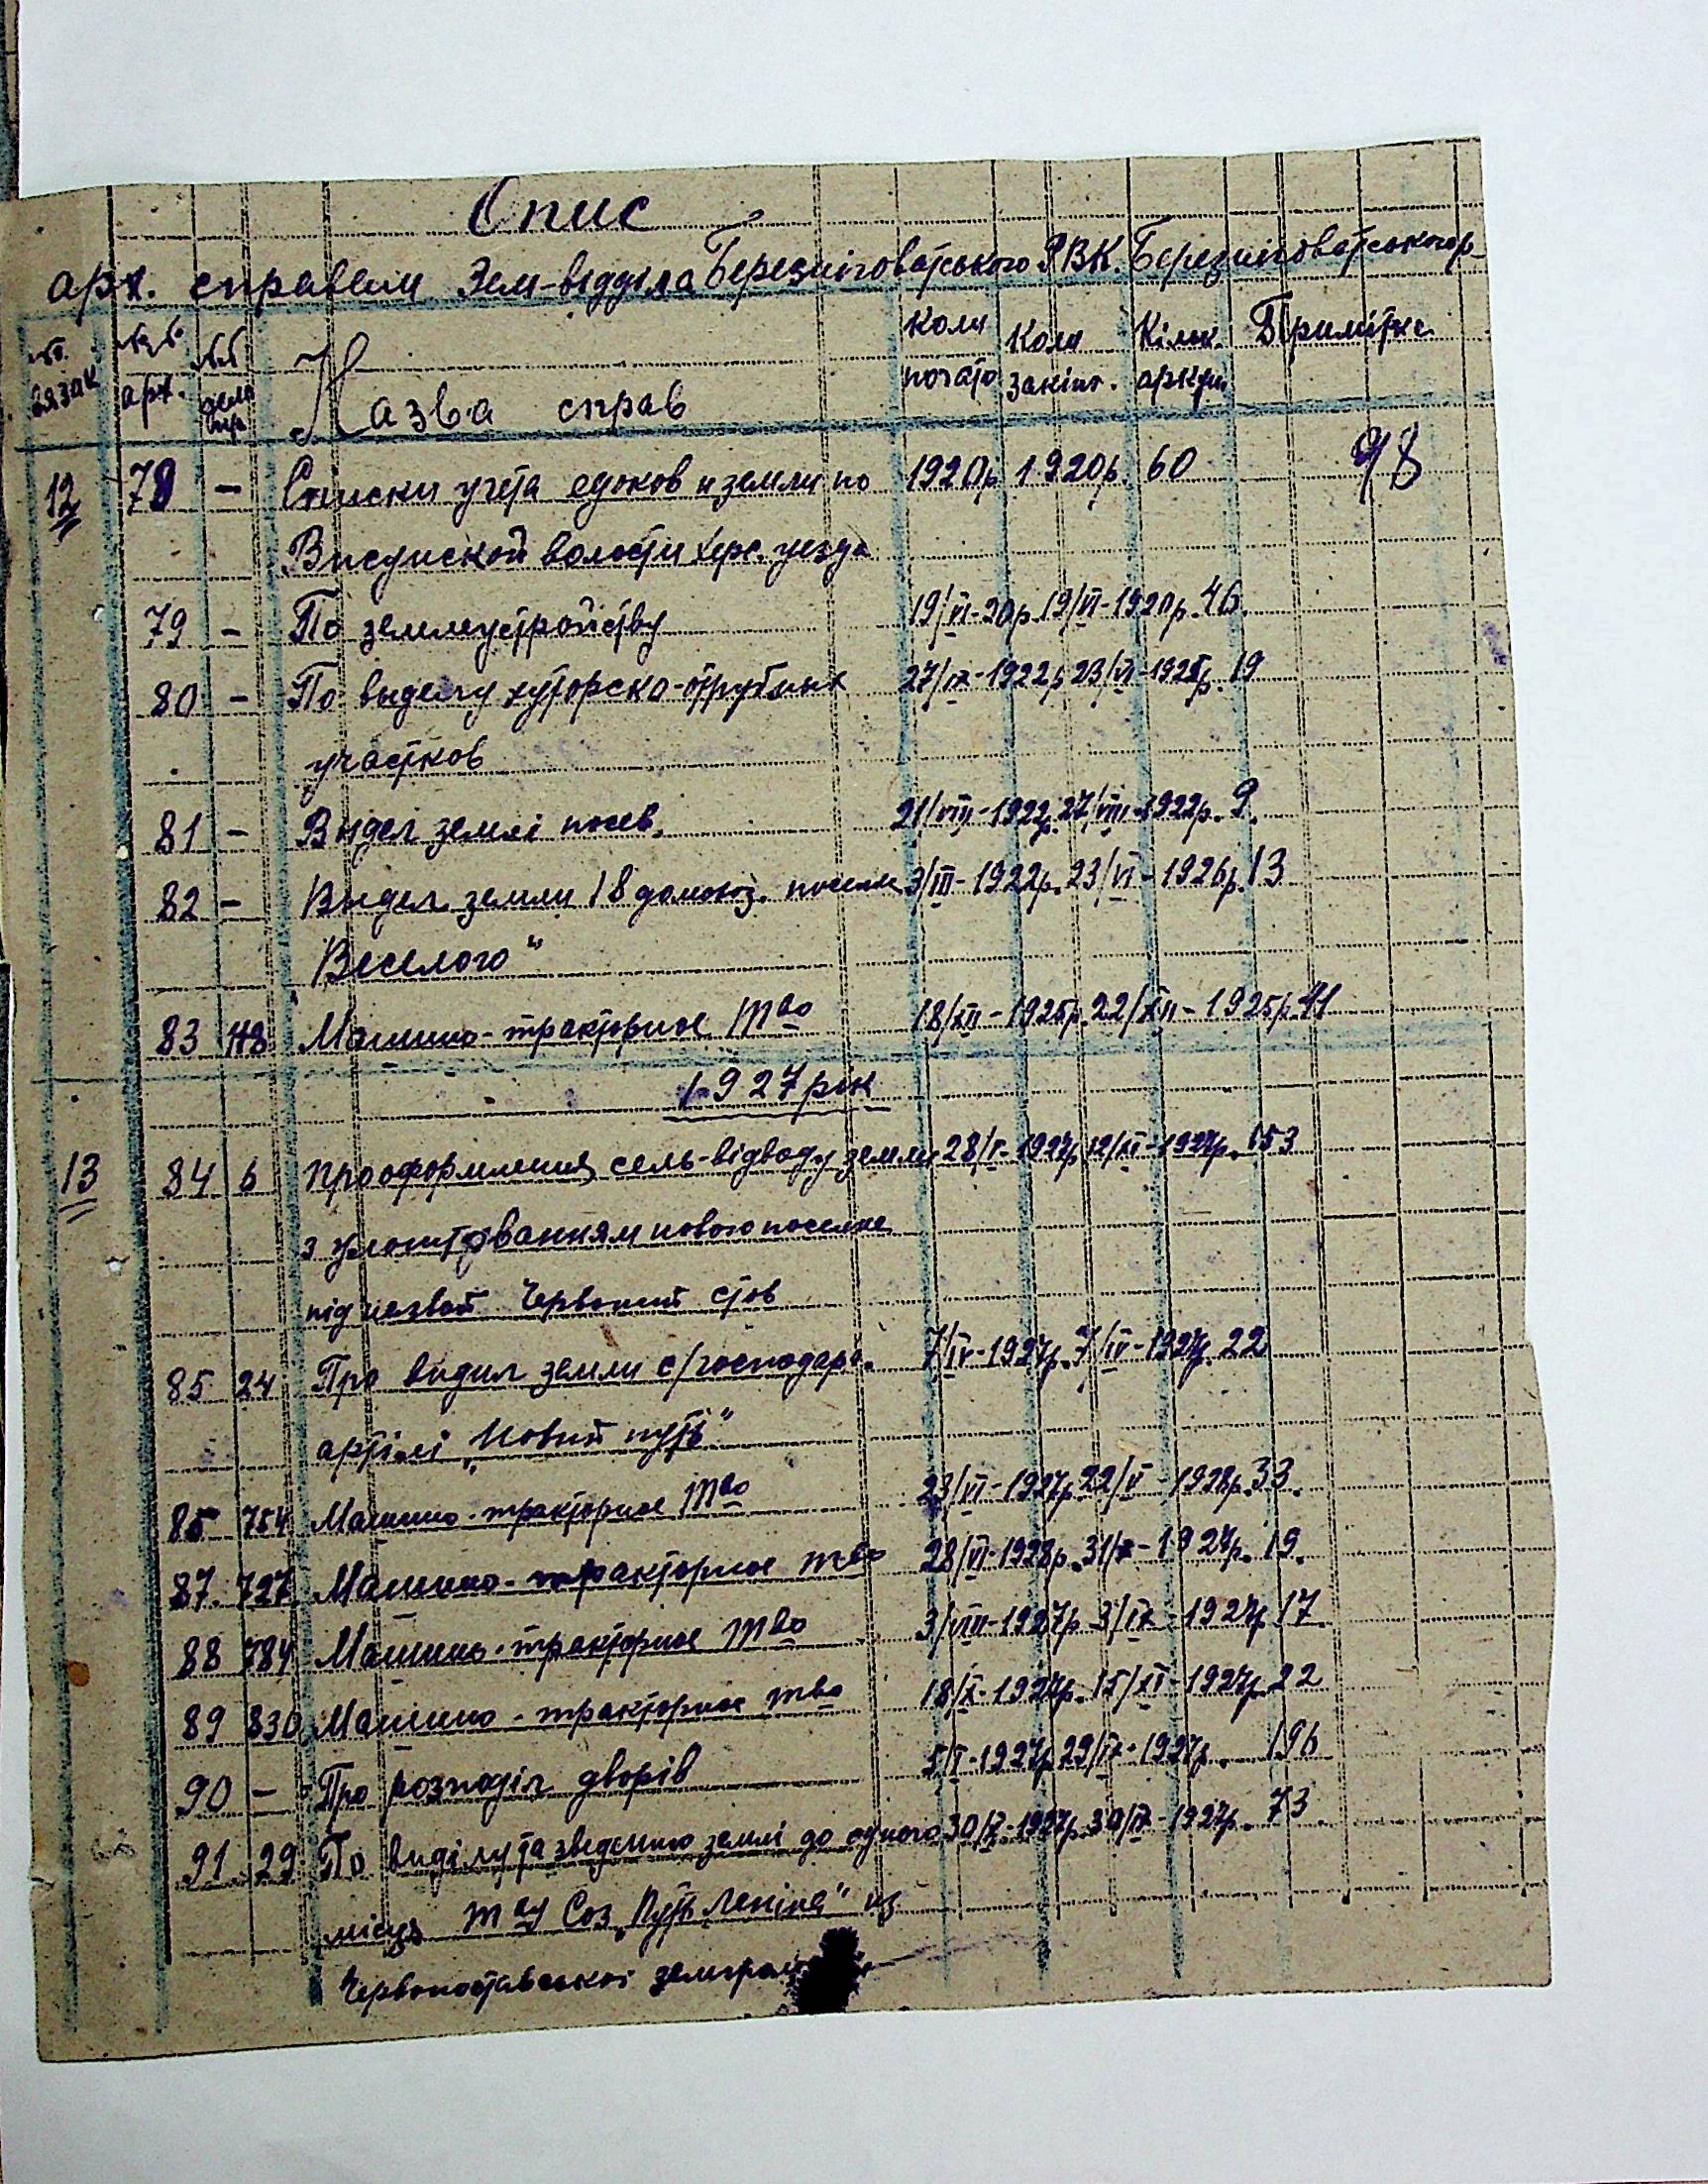 Опис
арх. справам Зем-відділа Березніговатського РВК. Березніговатського р-
№ вязак № арх. №№ Назва справ Коли почато Коли закінч. Кільк. аркуш. Примітка
12 78 – Списки учета едоков и земли по 1920р 1920р. 60 98
Висунской волости Херс. уезда
79 – По землеустройству 19/VI-20р. 19/VI-1920р. 46.
80 – По выделу хуторско-отрубных 27/IX-1922р 23/VI-192 р. 19
участков
81 – Видел землі посев. 21/VIII-1922р. 27/VIII-1922р. 9.
82 – Видел земли 18 домохоз. поселка 3/III-1922р. 23/VI-1926р. 13
Веселого"
83 Машино-тракторное Тво 18/XII-1925р. 22/XII-1925р. 41
1927 рік
13 84 6 Про оформлення сель-відводу земли 28/I-1927р 12/XI-1927р. 153
з улаштованням нового поселка
під назвой Червоний став
85 24 Про видил земли с/господарс. 7/IV-1927р. 7/IV-1927р. 22
артілі „Новий путь"
85 754 Машино-тракторное Тво 23/VI-1927р. 22/V-1928р. 33.
87. 727 Машино-тракторное тво 28/VI-1928р. 31/X-1927р. 19.
88 784 Машино-тракторное тво 3/VIII-1927р. 3/IX-1927р. 17.
89 830 Машино-тракторное тво 18/X-1927р. 15/XI-1927р. 22
90 – Про розподіл дворів 5/I-1927р. 29/IX-1927р. 196
91 29 По виділу та зведенню землі до одного 30/IX-1927р. 30/IX-1927р. 73
місця тву Соз „Путь Леніна"
Червоноставської земгром